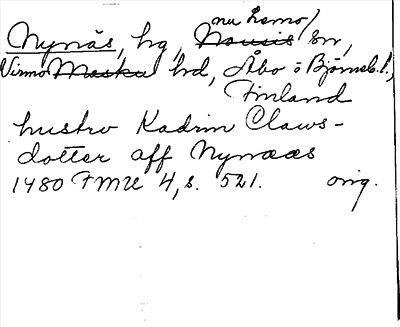 nu Lemo/
Nynäs, hg, Nousis sn,
Virmo Masku hd, Åbo o Björneb. l.,
Finland
hustro Kadrin Claws-
dotter aff Nynææs
1480 FMU 4, s. 521. orig.